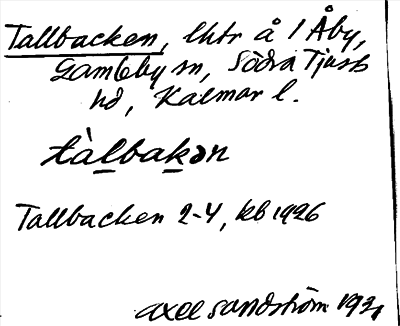 Tallbacken, lhtr å 1 Åby,
Gamleby sn, Södra Tjusts
hd, Kalmar l.
tàlbakən
Tallbacken 2-4, kb 1926
Axel Sandström